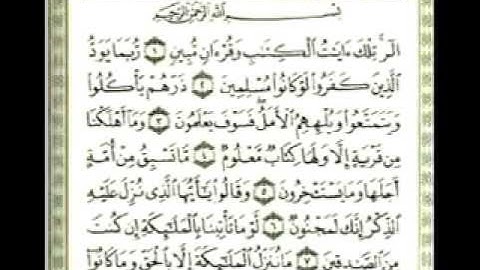 بِسْمِ اللَّهِ الرَّحْمَٰنِ الرَّحِيمِ
الٓر ۚ تِلْكَ ءَايَٰتُ ٱلْكِتَٰبِ وَقُرْءَانٍ مُّبِينٍ ١ رُّبَمَا يَوَدُّ
ٱلَّذِينَ كَفَرُوا۟ لَوْ كَانُوا۟ مُسْلِمِينَ ٢ ذَرْهُمْ يَأْكُلُوا۟
وَيَتَمَتَّعُوا۟ وَيُلْهِهِمُ ٱلْأَمَلُ ۖ فَسَوْفَ يَعْلَمُونَ ٣ وَمَآ أَهْلَكْنَا
مِن قَرْيَةٍ إِلَّا وَلَهَا كِتَابٌ مَّعْلُومٌ ٤ مَّا تَسْبِقُ مِنْ أُمَّةٍ
أَجَلَهَا وَمَا يَسْتَـْٔخِرُونَ ٥ وَقَالُوا۟ يَٰٓأَيُّهَا ٱلَّذِى نُزِّلَ عَلَيْهِ
ٱلذِّكْرُ إِنَّكَ لَمَجْنُونٌ ٦ لَّوْ مَا تَأْتِينَا بِٱلْمَلَٰٓئِكَةِ إِن كُنتَ
مِنَ ٱلصَّٰدِقِينَ ٧ مَا نُنَزِّلُ ٱلْمَلَٰٓئِكَةَ إِلَّا بِٱلْحَقِّ وَمَا كَانُوٓا۟